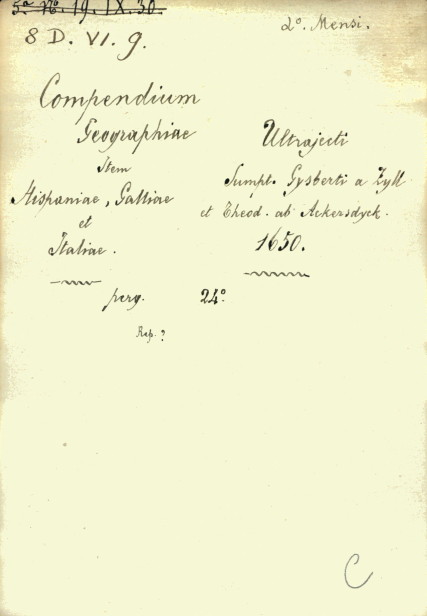 5ª Nº 19. IX. 30.
2º. Mensi.
8 D. VI. 9.
Compendium
Geographiae
Item
Hispaniae, Galliae
et
Italiae.
Ultrajecti
Sumpt. Gysberti a Zyll
et Theod. ab Ackersdyck.
1650.
perg. 24º
Rep. ?
C